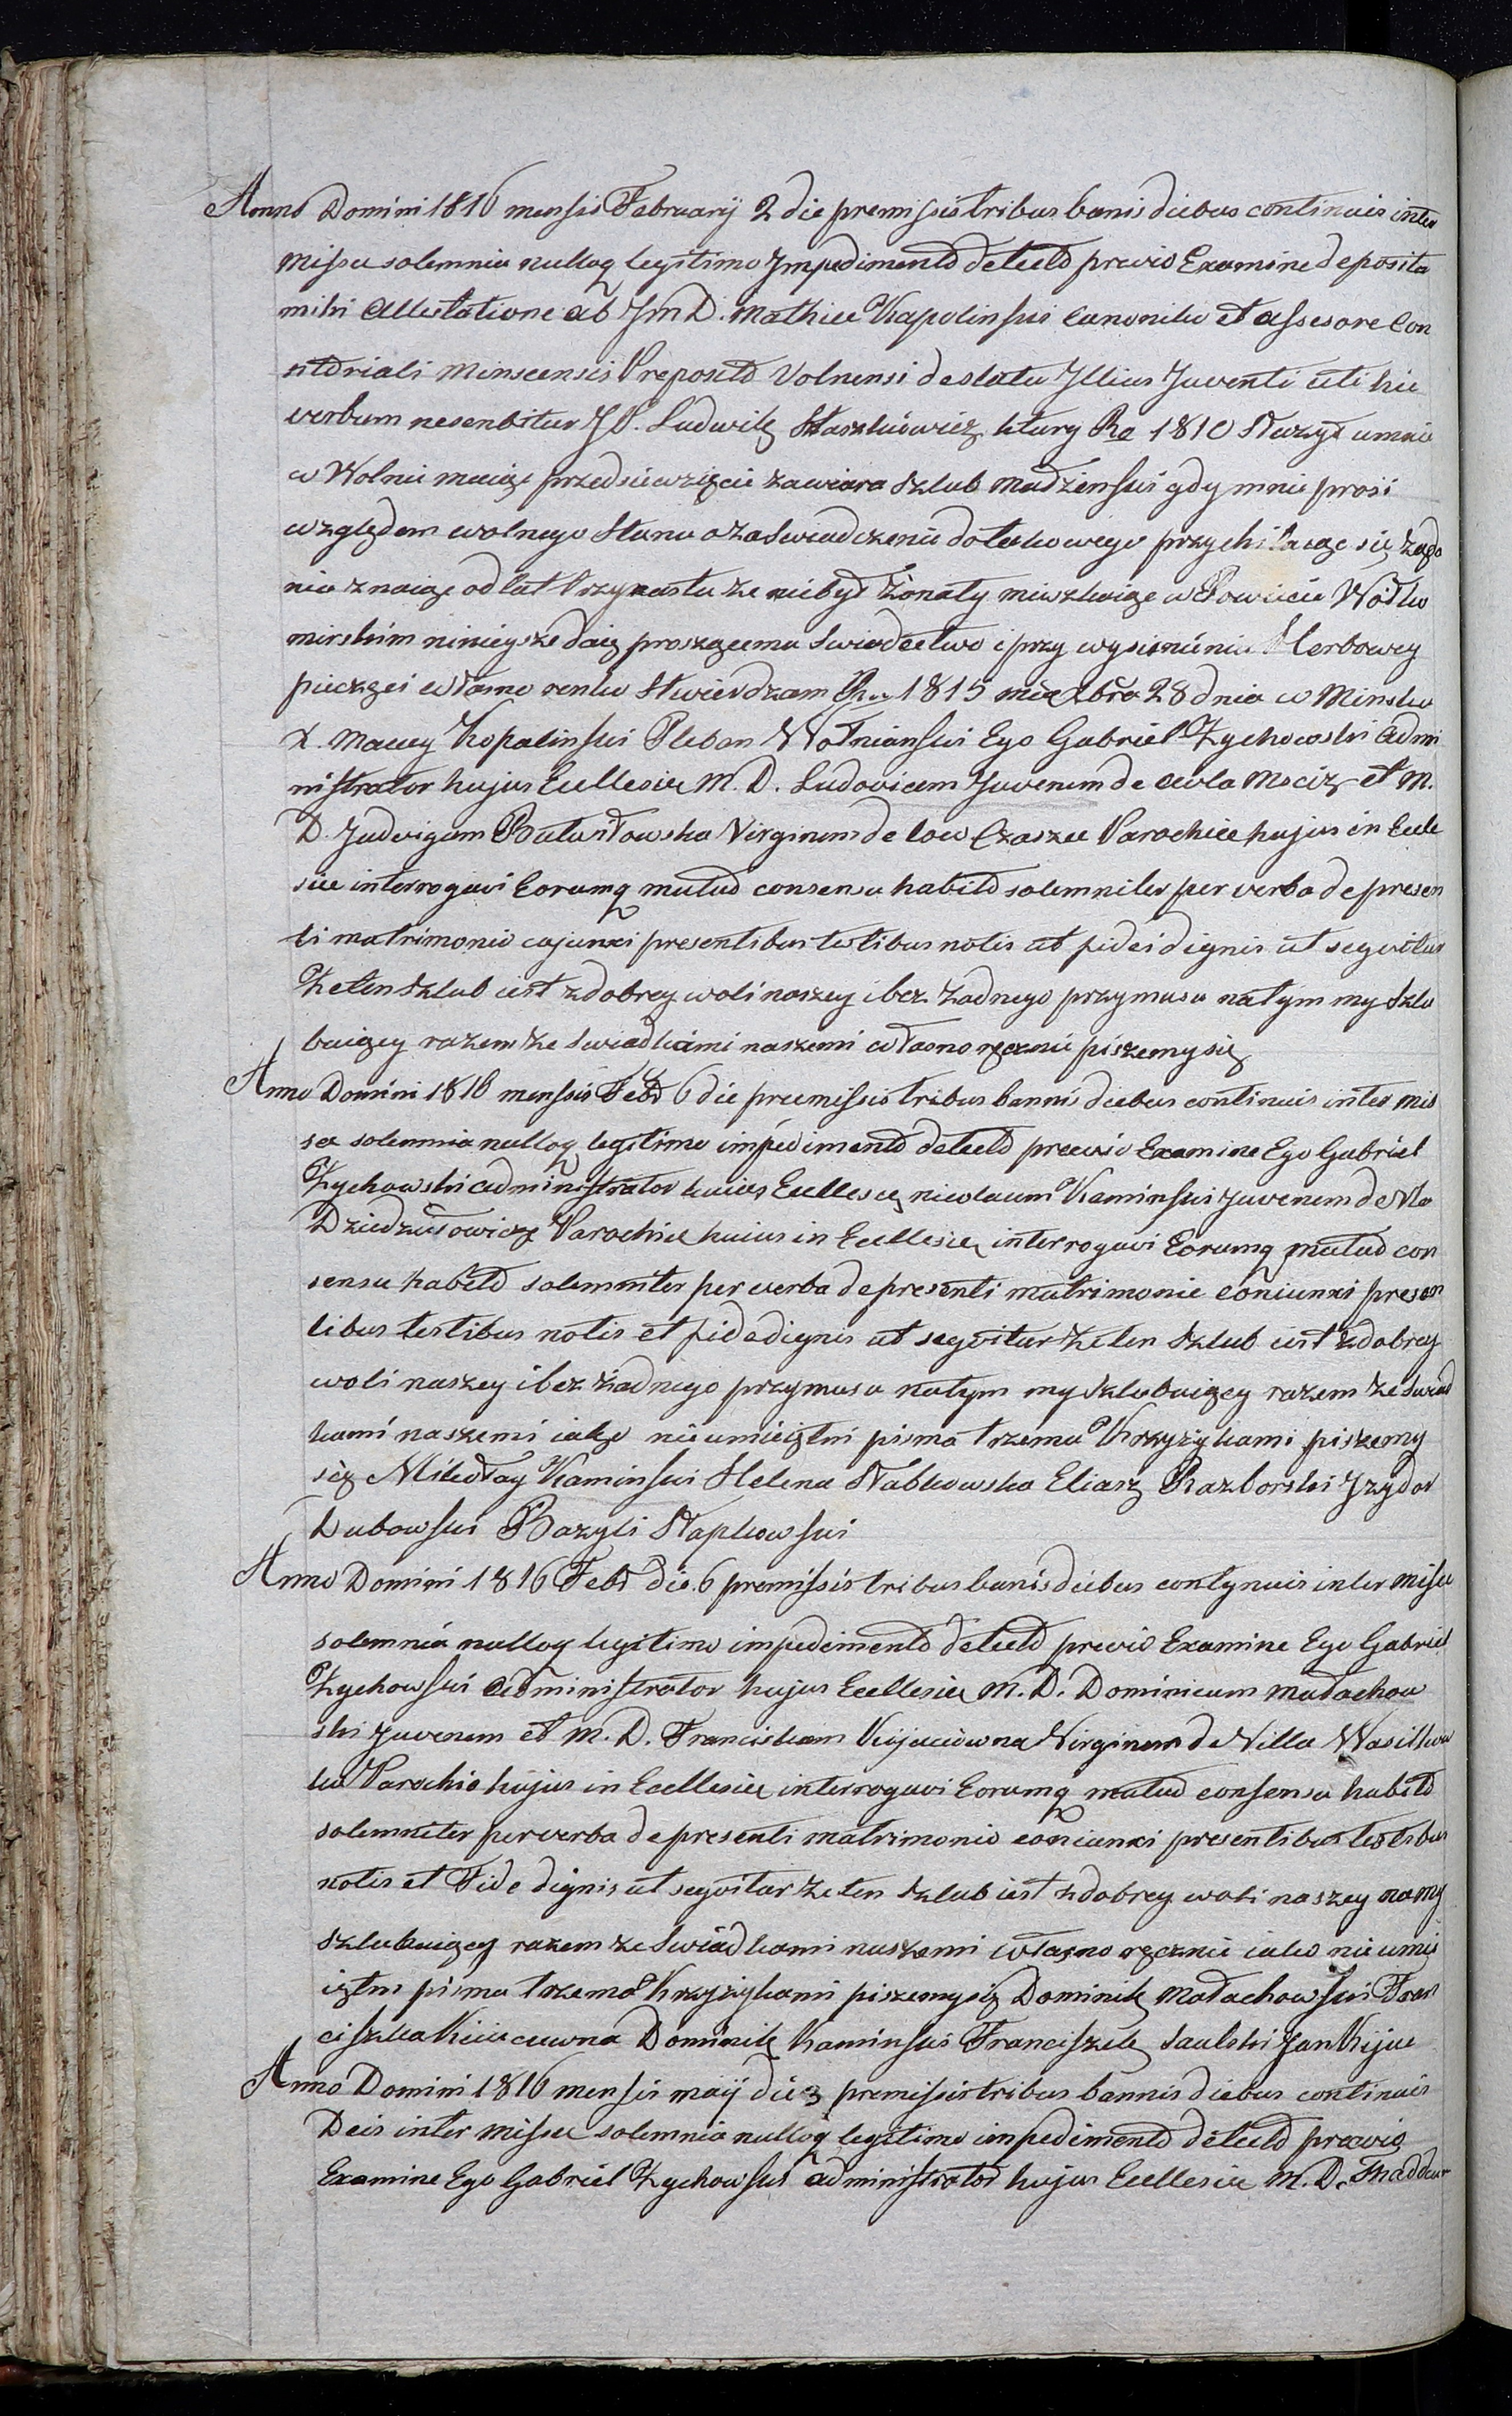 Anno Domini 1816 mensis Februarij 2 die premissis tribus banis diebus continuis inter
missa solemnia nulloq legitimo Impedimento detecto previo Examine deposita
mihi Attestatione ab JmD. Mathiee Kapelinski Canonico et assesore Con
storiali Minscensis Preposito Volnensi de statu Illius Juventi uti hic
verbum rescribitur JP. Ludwik Staszkiewicz ktury Ro 1810 Służył umnie
w Wolnie maiąc przedsiewzięcie zawiera szlub madżenski gdy mnie prosi
względem wolnego stanu o zaswiadczenie do takowego przychilaiąc się żąda
nia znaiąc od lat trzynastu ze niebył żonaty mieszkaiąc w Powiecie Wołko
mirskim niniejsze daię proszącemu swiadectwo i przy wycisnieniu Herbowey
pieczęci własno renku stwierdzam Ru 1815 mca Xbra 28 dnia w Minsku
X. Maciey Kopalinski Pleban Wołnianski Ego Gabriel Zychowski Admi
nistrator hujus Ecclesiæ M. D. Ludovicem Juvenem de Aula Msciz et M.
D. Judvigam Ratuszowska Virginem de Czaszec Parochiæ hujus in Eccle
siæ interrogavi Eorumq mutuo consensu habito solemniter per verba de presen
ti matrimonio cojunxi presentibus testibus notis at fidei dignis ut segvitur
Ze ten szlub iest z dobrey woli naszey i bez żadnego przymusu na tym my szlu
buiącey razem ze swiadkami naszemi własno ręcznie piszemy się
Anno Domini 1816 mensis Febr 6 die præmissis tribus bannis diebus continuis inter mis
sa solemnia nulloq legitimo impedimento detecto prævio Examine Ego Gabriel
Zychowski administrator huius Ecclesiæ nicolaum Kaminski Juvenem de Vla
Dziedziułowicz Parochiæ huius in Ecclesiæ interrogavi Eorumq mutuo con
sensu habito solemniter per verba de presenti matrimonie coniunxi presen
tibus testibus notis et fide dignis ut segvitur ze ten szlub iest zdobrey
woli naszey i bez żadnego przymusu na tym my szlubuiącey razem ze swiad
kami naszemi iako nieumieiętni pisma trzema Krzyżykami piszemy
się Mikołay Kaminski Helena Słabkowska Eliasz Razborski Jzydor
Dubowski Bazyli Słapkowski
Anno Domini 1816 Febr die 6 premissis tribus banis diebus contynuis inter missa
solemnia nulloq legitimo impedimento detecto previo Examine Ego Gabriel
Zychowski Administrator hujus Ecclesiæ M. D. Dominicum Małachow
ski Juvenem et M. D. Franciskam Kijuciowna Virginem de Villa Wasilkow
ka Parochie hujus in Ecclesiæ interrogavi Eorumq mutuo consensu habito
solemniter per verba de presenti matrimonio coniunxi presentibus testibus
notis et Fide dignis ut segvitur Ze ten szlub iest z dobrey woli naszey na my
szlubuiącey razem ze swiadkami naszemi własno ręcznie iako nie umie
iętni pisma trzema Krzyżykami piszemy się Dominik Małachowski Fran
ciszka Kiiucuwna Dominik Kaminski Franciszek Saulski Jan Kijuc
Anno Domini 1816 mensis maij die 3 premissis tribus bannis diebus continuis
Deis inter missa solemnia nulloq legitimo impedimento detecto prævio
Examine Ego Gabriel Zychowski administrator hujus Ecclesiæ M. D. Thaddeum